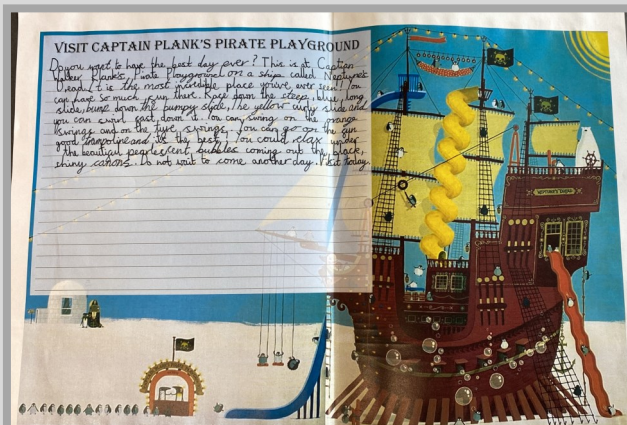 VISIT CAPTAIN PLANK'S PIRATE PLAYGROUND
Do you want to have the best day ever? This is it. Captain
Walker Plank's Pirate Playground on a ship called Neptune's
Dread, it is the most incredible place you've ever seen! You
can have so much fun there. Race down the steep, blue, long
slide, bump down the bumpy slide, the yellow curly slide and
you can swirl fast down it. You can swing on the orange
swings and on the tyre swings. You can go on the fun
good trampoline and its the best! You could relax under
the beautiful pearlescent bubbles coming out the black,
shiny canons. Do not wait to come another day. Visit today.
NEPTUNE'S DREAD